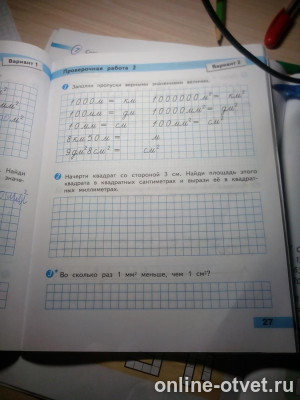 Вариант 1
Проверочная работа 2
Вариант 2
1 Заполни пропуски верными значениями величин.
1000м = км 1000000м² = км²
100мм = дм 10000мм² = дм²
10мм = см 100мм² = см²
8км50м = м
9дм²8см² = см²
2 Начерти квадрат со стороной 3 см. Найди площадь этого
квадрата в квадратных сантиметрах и вырази её в квадрат-
ных миллиметрах.
Найди
значе-
3* Во сколько раз 1 мм² меньше, чем 1 см²?
27
online-otvet.ru